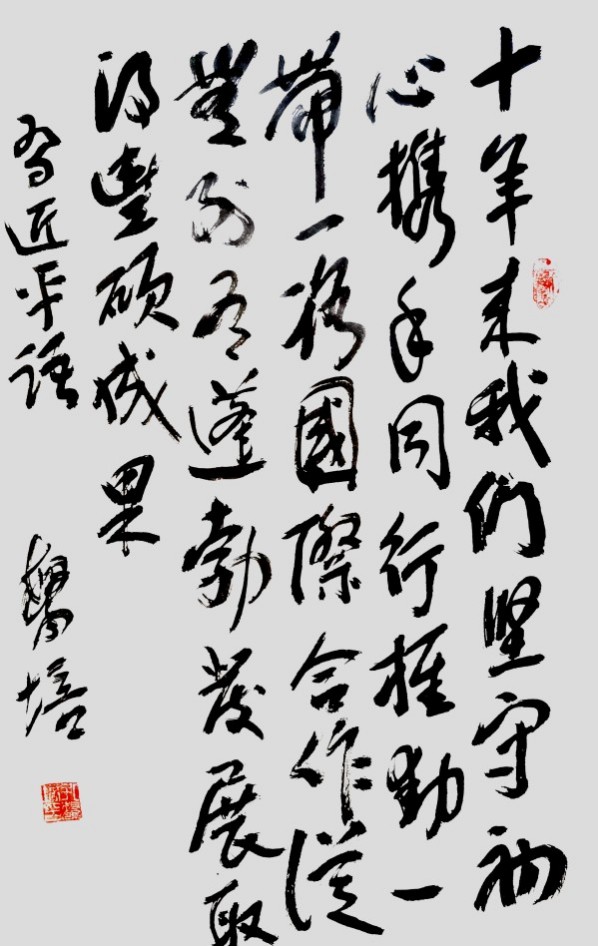 十年来我們堅守初
心攜手同行推動一
帶一路國際合作從
無到有蓬勃發展取
得豐碩成果
習近平語 馨培